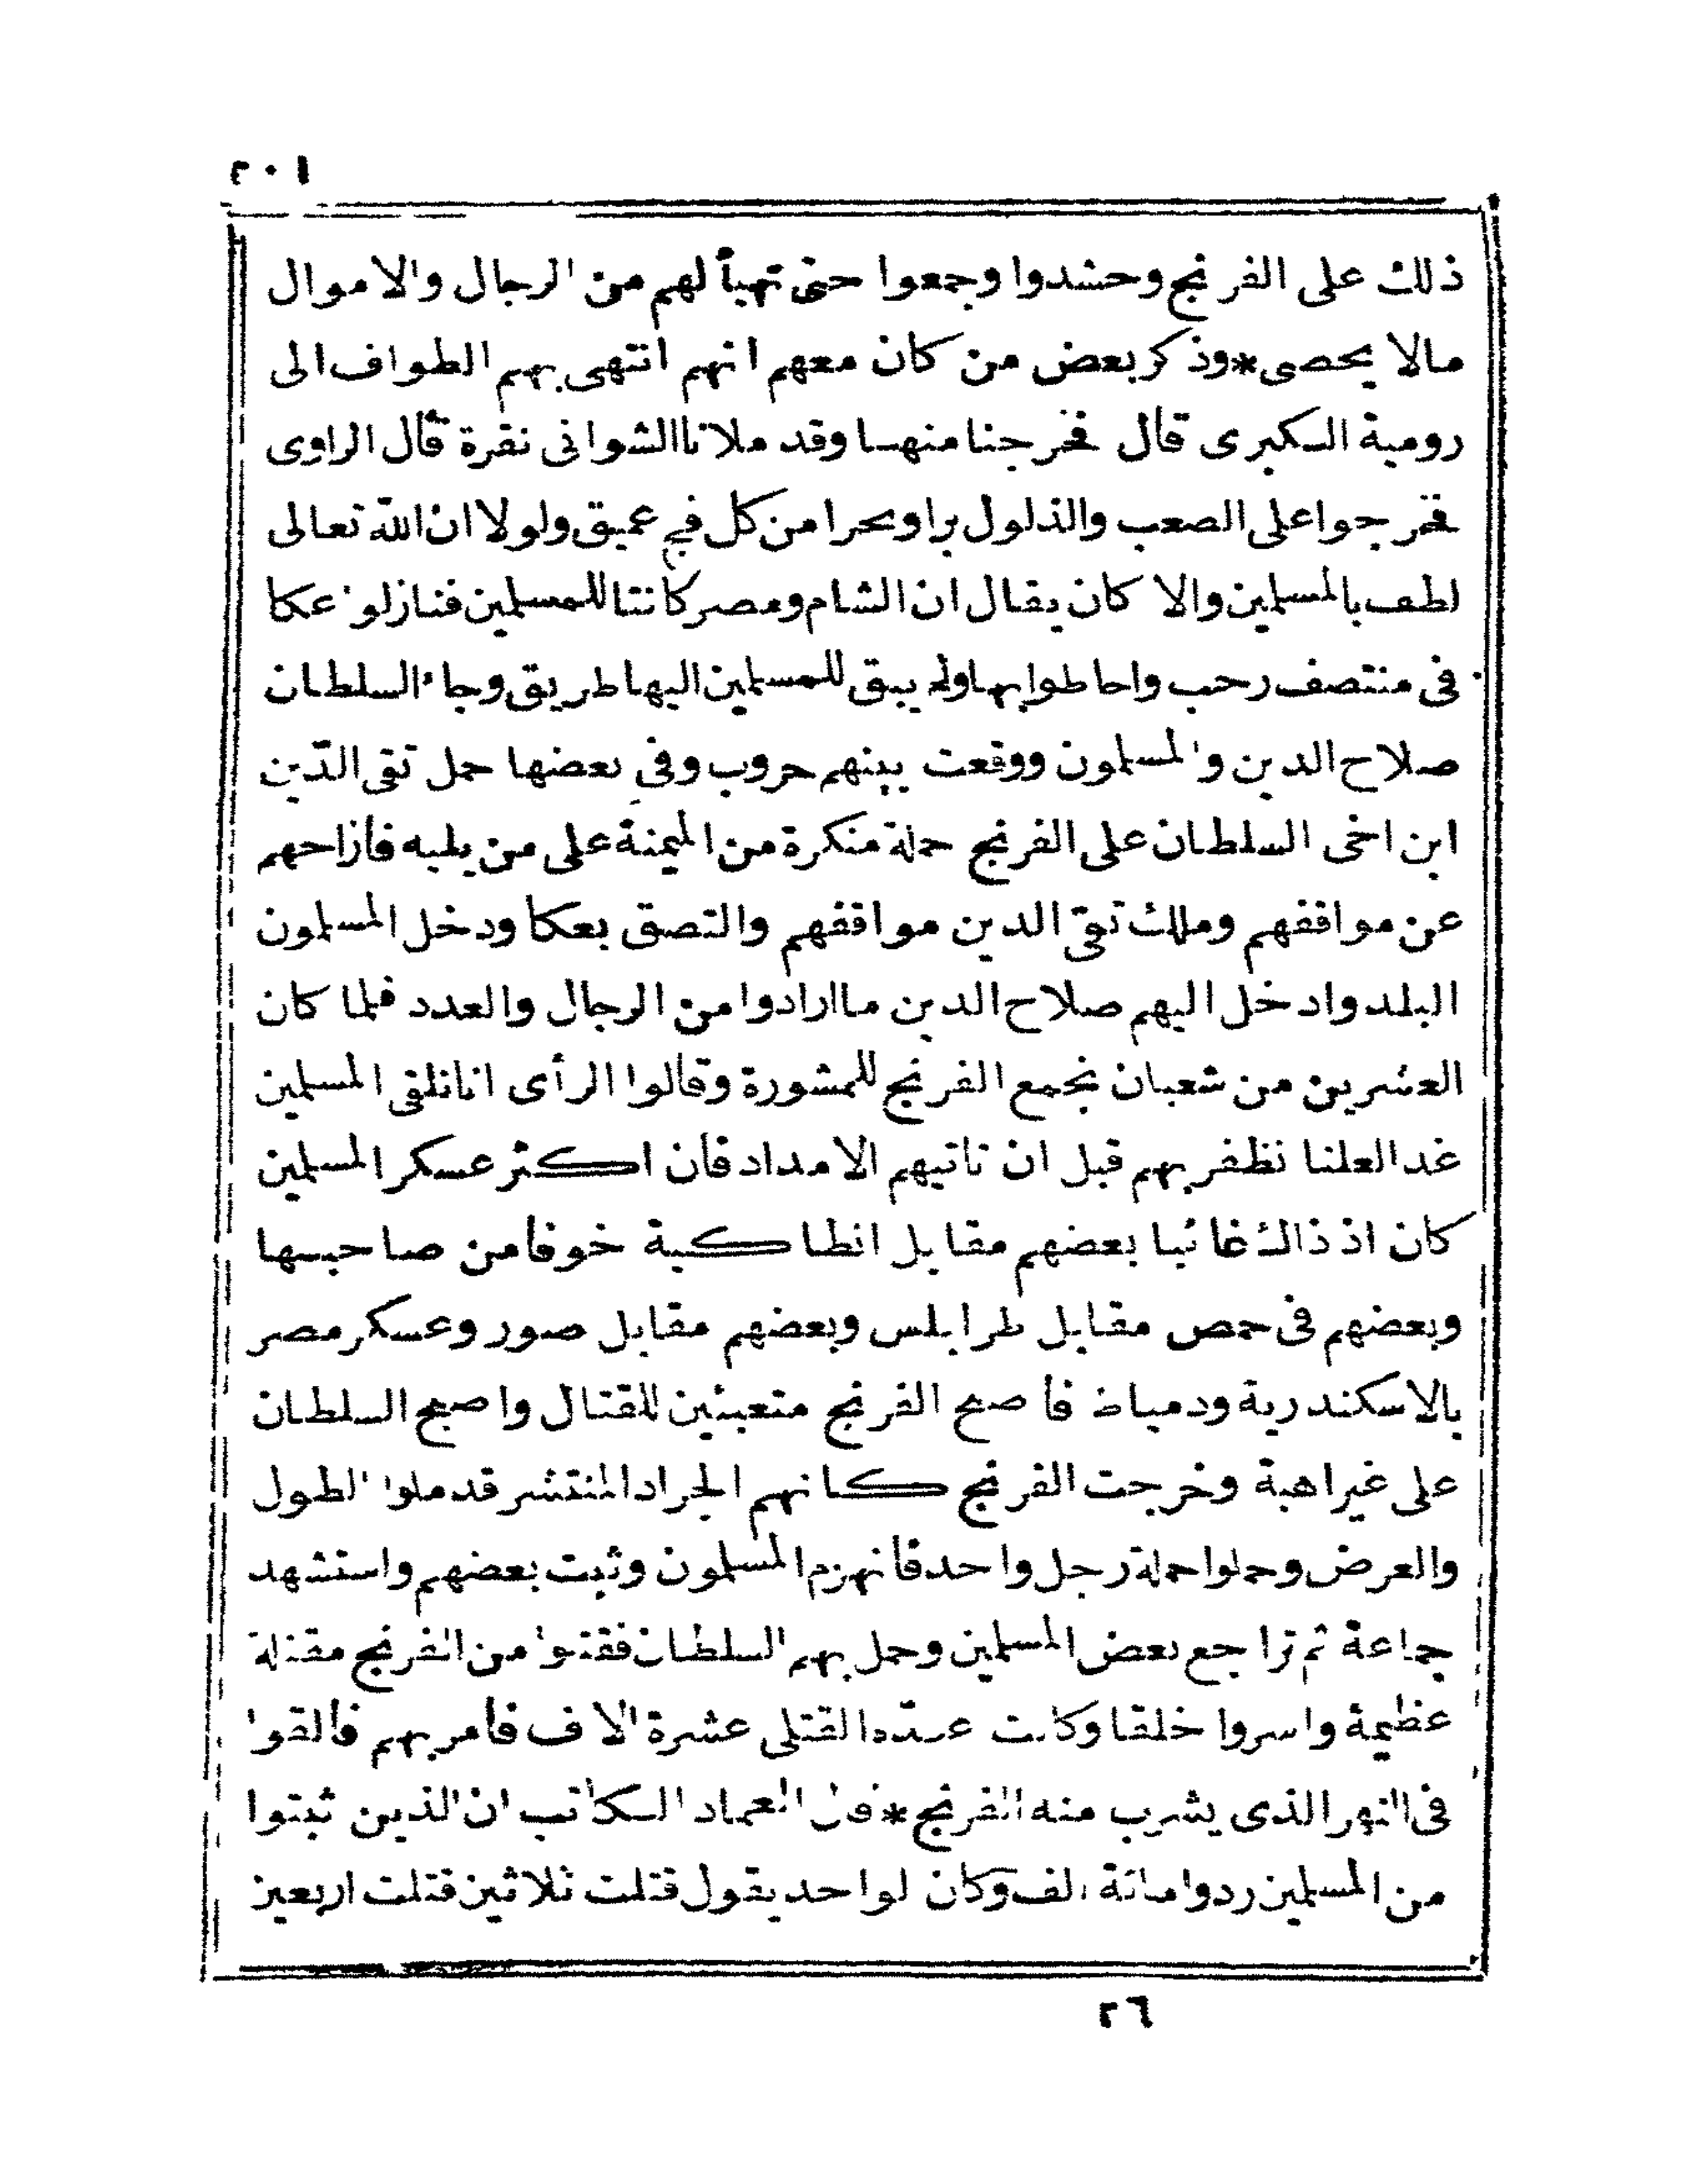 ٢٠١
ذلك على الفرنج وحشدوا وجمعوا حتى تهيأ لهم من الرجال والاموال
مالا يحصى*وذكر بعض من كان معهم انهم انتهى بهم الطواف الى
رومية الكبرى قال فخرجنا منها وقد ملانا الشوانى نقرة قال الراوى
فخرجوا على الصعب والذلول برا وبحرا من كل فج عميق ولولا ان الله تعالى
لطف بالمسلمين والا كان يقال ان الشام ومصر كانتا للمسلمين فنازلوا عكا
فى منتصف رجب واحاطوا بها ولم يبق للمسلمين اليها طريق وجاء السلطان
صلاح الدين والمسلمون ووقعت بينهم حروب وفى بعضها حمل تقى الدّين
ابن اخى السلطان على الفرنج حملة منكرة من الميمنة على من يليه فازاحهم
عن مواقفهم وملك تقى الدين مواقفهم والتصق بعكا ودخل المسلمون
البلد وادخل اليهم صلاح الدين ما ارادوا من الرجال والعدد فلما كان
العشرين من شعبان تجمع الفرنج للمشورة وقالوا الرأى انا نلقى المسلمين
غدا لعلنا نظفر بهم قبل ان تاتيهم الامداد فان اكثر عسكر المسلمين
كان اذ ذاك غائبا بعضهم مقابل انطاكية خوفا من صاحبها
وبعضهم فى حمص مقابل طرابلس وبعضهم مقابل صور وعسكر مصر
بالاسكندرية ودمياط فاصبح الفرنج متعبئين للقتال واصبح السلطان
على غير اهبة وخرجت الفرنج كانهم الجراد المنتشر قد ملوا الطول
والعرض وحملوا حملة رجل واحد فانهزم المسلمون وثبت بعضهم واستشهد
جماعة ثم تراجع بعض المسلمين وحمل بهم السلطان فقتلوا من الفرنج مقتلة
عظيمة واسروا خلقا وكانت عدّة القتلى عشرة الاف فامر بهم فالقوا
فى النهر الذى يشرب منه الفرنج*قال العماد الكاتب ان الذين ثبتوا
من المسلمين ردوا مائة الف وكان لواحد يقول قتلت ثلاثين قتلت اربعين
٢٦